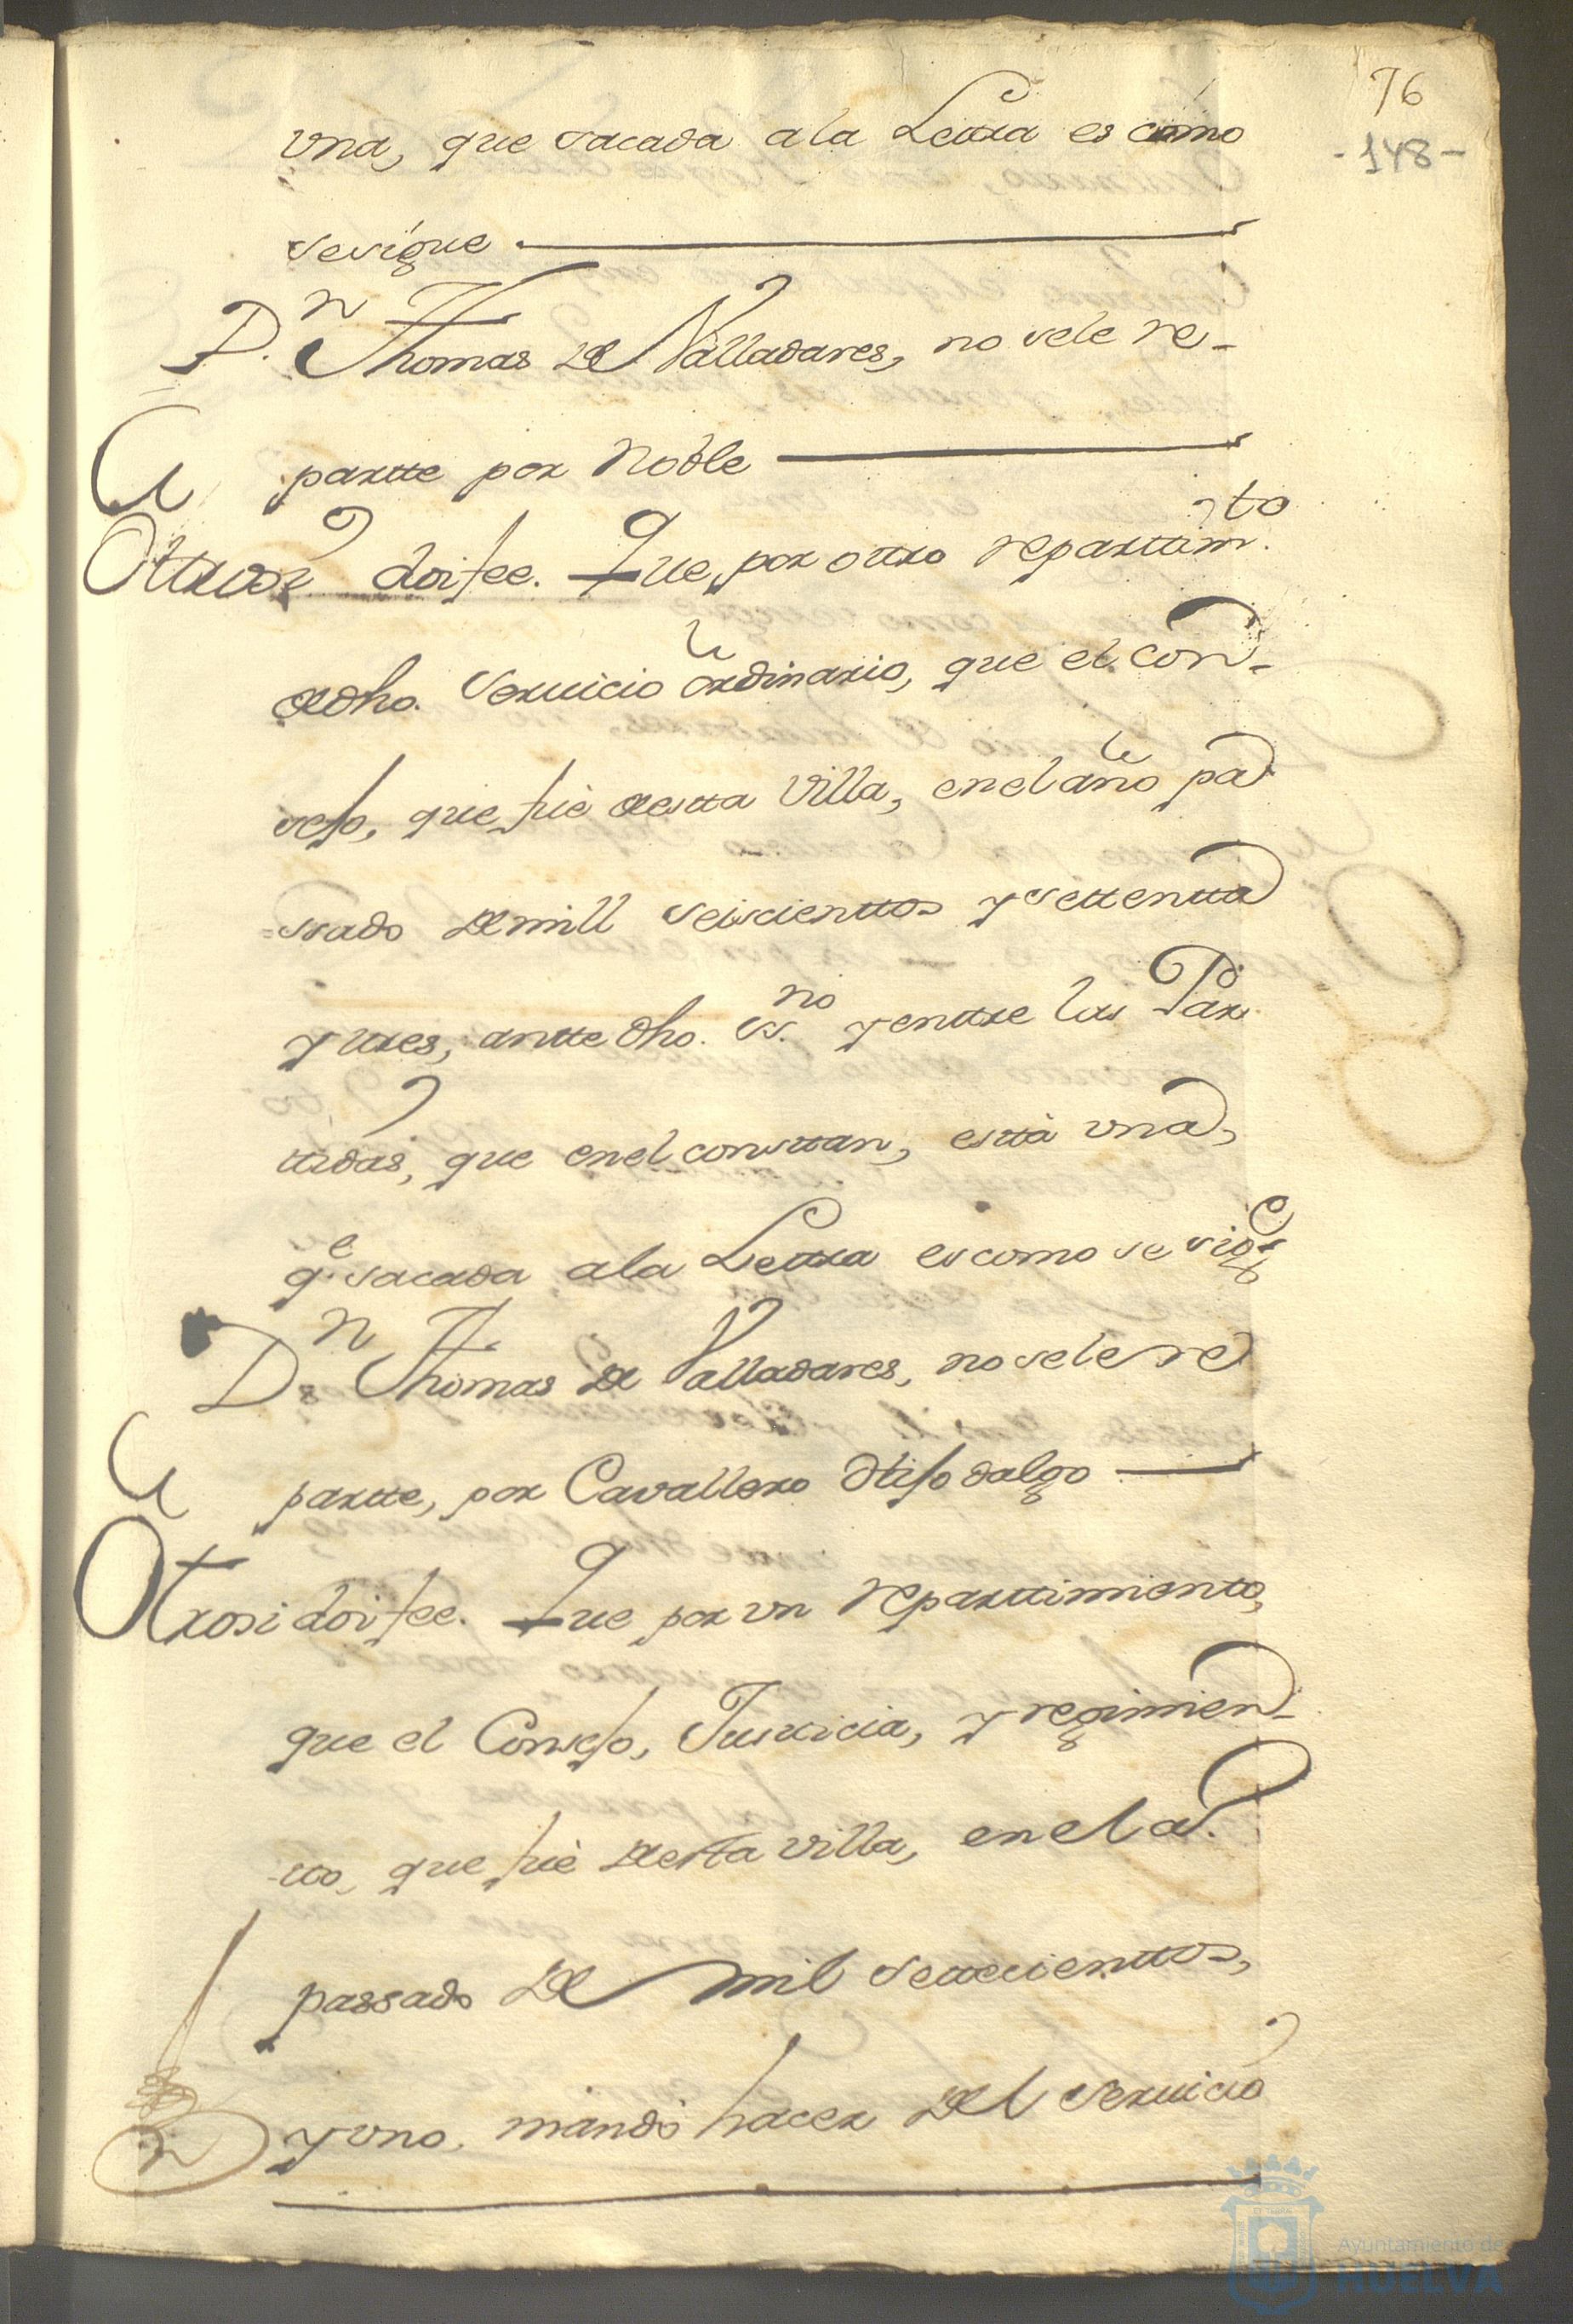 76
-148-
vna, que sacada a la Lettra es como
se sigue
D.n Thomas de Valladares, no se le re-
partte por Noble
Ottrosi doi fee. Que por ottro reparttim.to
de dho. Seruicio ordinario, que el Con-
sejo, que fuè de estta Villa, en el año pa
ssado de mill seiscienttos y settentta
y ttres, antte dho. ess.no y enttre las Par
ttidas, que en el consttan, esttà vna,
q.e sacada a la Lettra es como se sigue
D.n Thomas de Valladares, no se le re
partte, por Cavallero Hijodalgo
Otrosi doi fee. Que por vn reparttimiento,
que el Consejo, Justticia, y regimien-
tto, que fuè de esta villa, en el a.
passado de mil settecienttos,
y vno. mandò hacer del seruicio
Ayuntamiento de
HUELVA